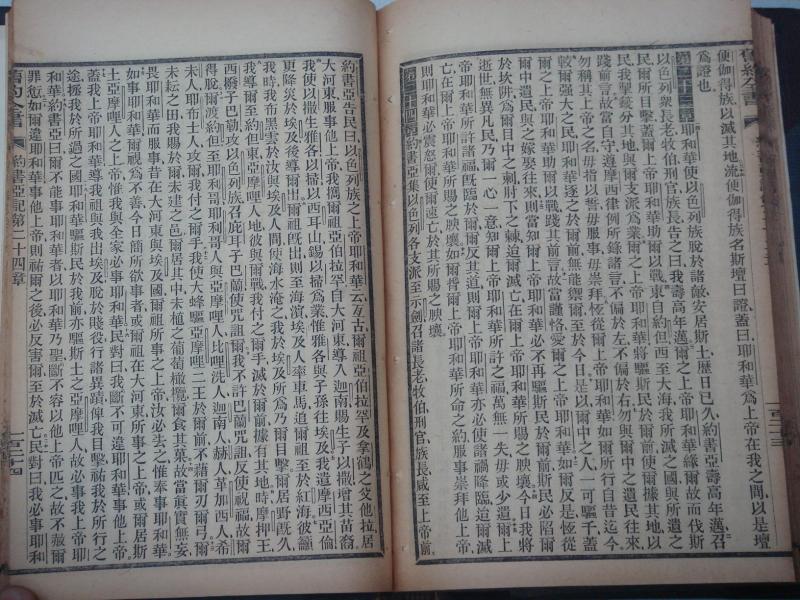 舊約全書
使伽得族以滅其地流使伽得族名斯壇曰證蓋曰耶和華爲上帝在我之間以是壇
爲證也
第二十三章 耶和華使以色列族脫於諸敵安居斯土歷日已久約書亞壽高年邁召
以色列衆長老牧伯刑官族長告之曰我壽高年邁爾之上帝耶和華緣爾故而伐斯
民爾所目擊蓋爾上帝耶和華助爾以戰東自約但西至大海我所滅之國與所遺之
民我掣籤分其地與爾支派爲業爾之上帝耶和華將驅斯民於爾前使爾據其地以
踐前言故當自守遵摩西律例所錄諸言不偏於左不偏於右勿與爾中之遺民往來
勿稱其上帝之名毋指以誓毋服事毋崇拜恆從爾上帝耶和華如爾所行自昔迄今
較爾強大之民耶和華逐之於爾前無能禦爾至於今日是以爾中之一人可驅千蓋
爾之上帝耶和華助爾以戰踐其前言故當謹恪愛爾之上帝耶和華如爾反是恆從
遺民與之嫁娶往來則當知爾上帝耶和華必不再驅斯民於爾前斯民必陷爾
於坎阱爲爾目中之刺肘下之棘迨爾滅亡在爾上帝耶和華所賜之腴壤今日我將
逝世無異凡民乃爾一心一意知爾上帝耶和華所許之福萬無一失毋或少遺爾上
帝耶和華所許諸福旣驗於爾爾反其道則爾上帝耶和華亦必使諸禍降臨迨爾滅
亡在爾上帝耶和華所賜之腴壤如爾背爾上帝耶和華所命之約服事崇拜他上帝
則耶和華必震怒爾使爾速亡於其所賜之腴壤
第二十四章 約書亞集以色列各支派至示劍召諸長老牧伯刑官族長咸至上帝前
約書亞告民曰以色列族之上帝耶和華云亙古爾祖亞伯拉罕及拿鶴之父他拉居
大河東服事他上帝我攜爾祖亞伯拉罕自大河東導入迦南賜生子以撒增其苗裔
我使以撒生雅各以掃以西耳山錫以掃爲業惟雅各與子孫往埃及我遣摩西亞倫
更降災於埃及後導爾出爾祖旣出則至海濱埃及人率車馬追爾祖至於紅海彼籲
我時我布黑雲於汝與埃及人間使海水淹之我於埃及所爲乃爾目擊爾居野旣久
我導爾至約但東亞摩哩人地彼與爾戰我付之爾手滅於爾前據有其地時摩押王
西撥子巴勒攻以色列族召庇耳子巴蘭使咒詛爾我不許巴蘭咒詛反使祝福故爾
得脫爾渡約但至耶利哥耶利哥人與亞摩哩人比哩洗人迦南人赫人革加西人希
未人耶布士人攻爾我付之爾手我使大蜂驅亞摩哩二王於爾前不藉爾刃爾弓爾
未耘之田我賜於爾未建之邑爾居其中未植之葡萄橄欖爾食其菓故當眞實無妄
畏耶和華而服事昔在大河東與埃及國爾祖所事之上帝汝必去之惟奉事耶和華
如以事耶和華爲不善今日簡所欲事者或爾祖在大河東所事之上帝或爾居斯
土亞摩哩人之上帝惟我與全家必事耶和華民對曰我斷不可違耶和華事他上帝
蓋我上帝耶和華導我祖與我出埃及脫於賤役行諸異蹟俾我目擊祐我於所行之
途拯我於所過之國耶和華驅斯民於我前亦驅斯土之亞摩哩人故必事我上帝耶
和華約書亞曰爾不能事耶和華者以耶和華乃聖斷不容以他上帝匹之故不蔽爾
罪愆如爾違耶和華事他上帝則祐爾之後必反害爾至於滅亡民對曰我必事耶和
舊約全書 約書亞記第二十四章 一百二十四